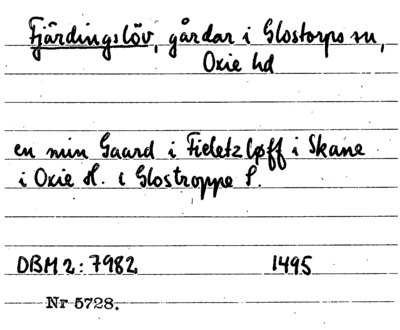 Fjärdingslöv, gårdar i Glostorps sn,
Oxie hd
en min Gaard i Fieletzløff i Skane
i Oxie H. i Glostroppe S.
DBM 2: 7982 1495
Nr 5728.